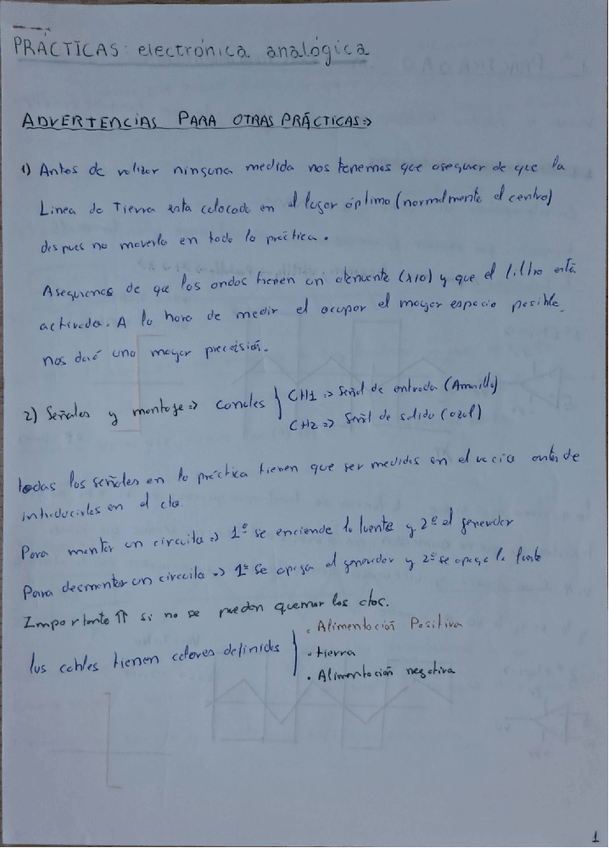 PRÁCTICAS: electrónica analógica
ADVERTENCIAS PARA OTRAS PRÁCTICAS =>
1) Antes de realizar ninguna medida nos tenemos que asegurar de que la
Línea de Tierra esta colocada en el lugar óptimo (normalmente el centro)
despues no moverla en toda la práctica.
Asegurarnos de que las ondas tienen un atenuante (x10) y que el filtro está
activado. A la hora de medir el ocupar el mayor espacio posible,
nos dará una mayor precisión.
2) Señales y montaje => canales } CH1 => Señal de entrada (Amarillo)
CH2 => Señal de salida (azul)
todas las señales en la práctica tienen que ser medidas en el vacio antes de
introducirlas en el cto.
Para montar un circuito => 1º se enciende la fuente y 2º el generador
Para desmontar un circuito => 1º Se apaga el generador y 2º se apaga la fuente
Importante ⇈ si no se pueden quemar los ctos.
los cables tienen colores definidos } · Alimentación Positiva
· tierra
· Alimentación negativa
1